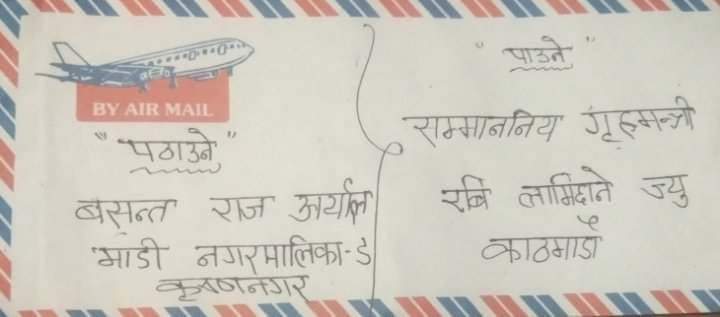 BY AIR MAIL
"पठाउने"
बसन्त राज अर्याल
माडी नगरपालिका-३
कृष्णनगर
"पाउने"
सम्माननिय गृहमन्त्री
रबि लामिछाने ज्यु
काठमाडौ